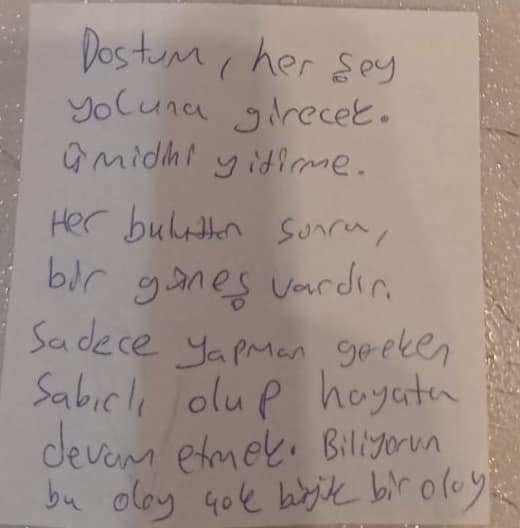 Dostum, her şey
yoluna girecek.
Ümidini yitirme.
Her buluttan sonra,
bir güneş vardır.
Sadece yapman gereken
Sabırlı olup hayata
devam etmek. Biliyorum
bu olay çok büyük bir olay